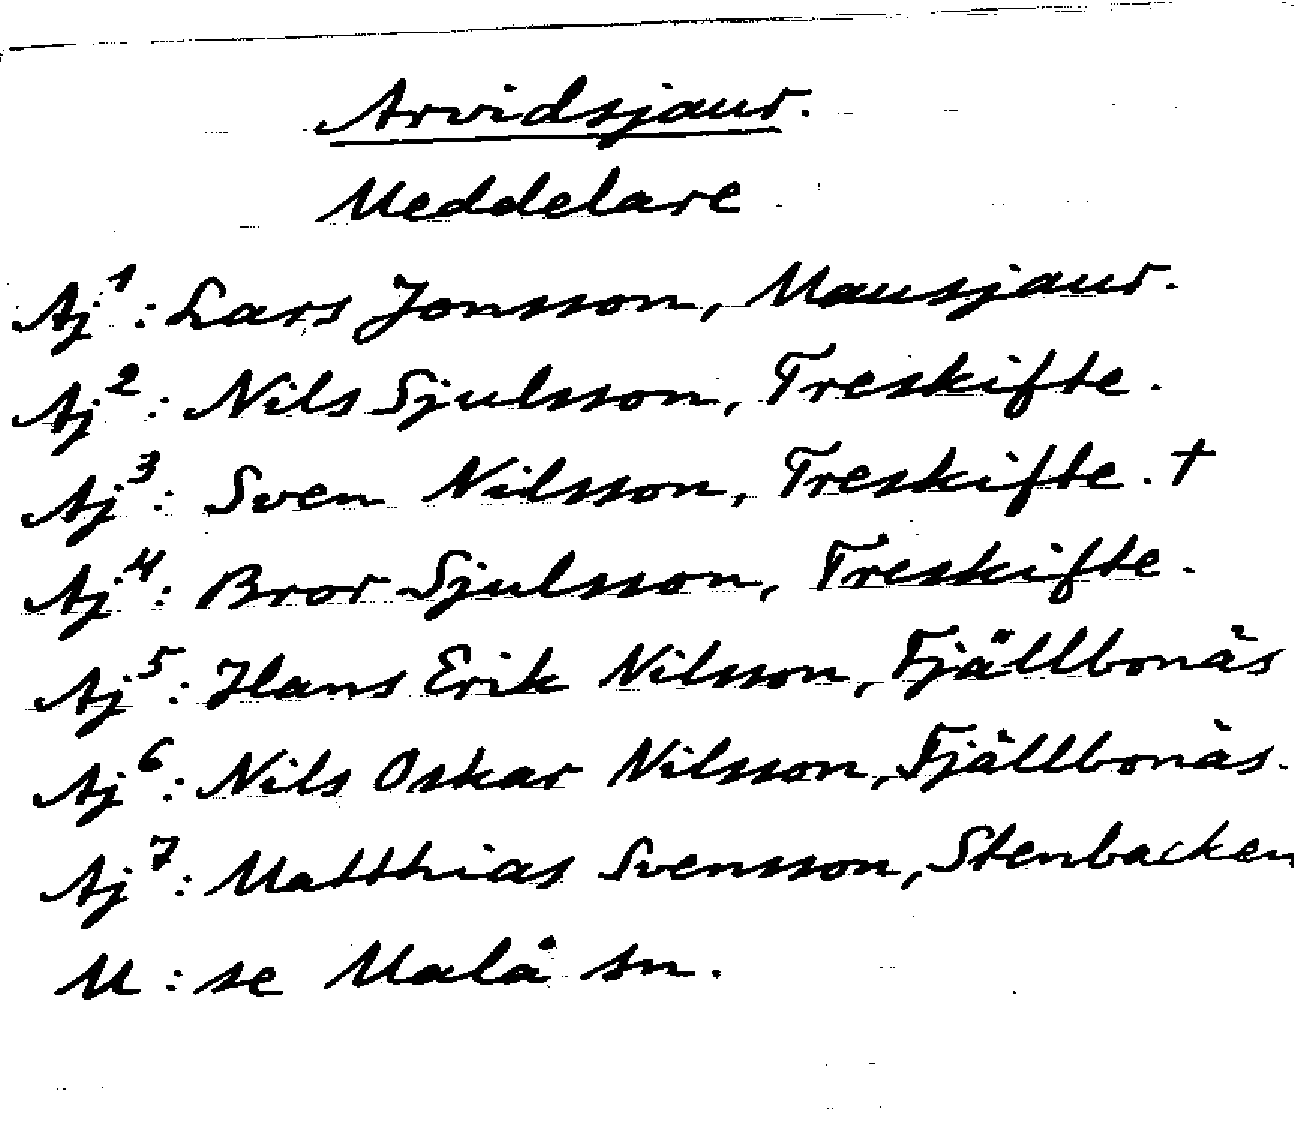 Arvidsjaur.
Meddelare
Aj¹: Lars Jonsson, Mausjaur.
Aj²: Nils Sjulsson, Treskifte.
Aj³: Sven Nilsson, Treskifte. †
Aj⁴: Bror Sjulsson, Treskifte.
Aj⁵: Hans Erik Nilsson, Fjällbonäs
Aj⁶: Nils Oskar Nilsson, Fjällbonäs.
Aj⁷: Matthias Svensson, Stenbacken
M: se Malå sn.